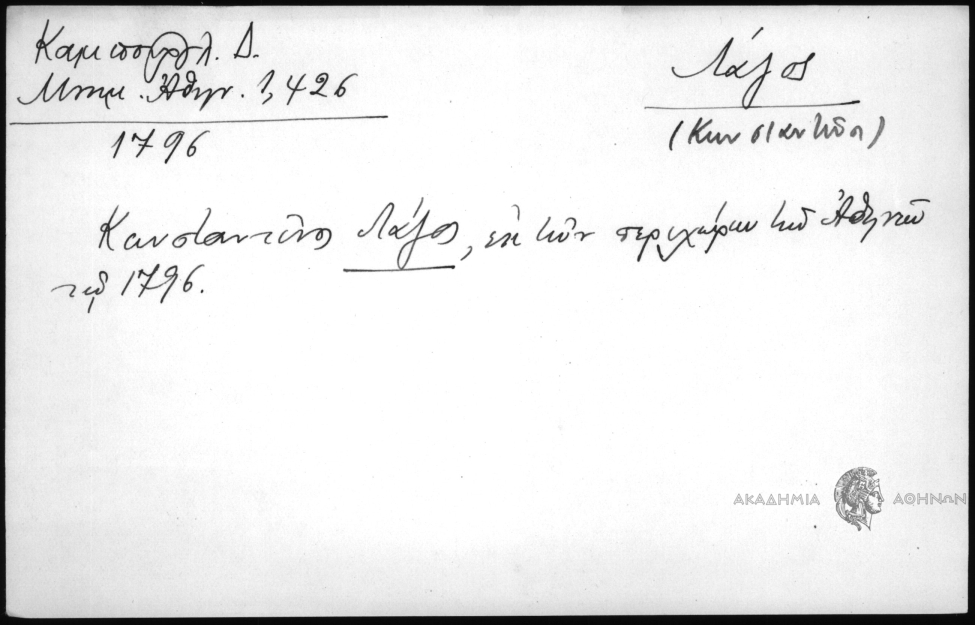 Καμπουρογλ. Δ.
Μνημ. Ἀθην. 1, 426
1796
Λάζος
(Κωνσταντῖνος)
Κωνσταντῖνος Λάζος, ἐκ τῶν περιχώρων τῶν Ἀθηνῶν
τῷ 1796.
ΑΚΑΔΗΜΙΑ ΑΘΗΝΩΝ